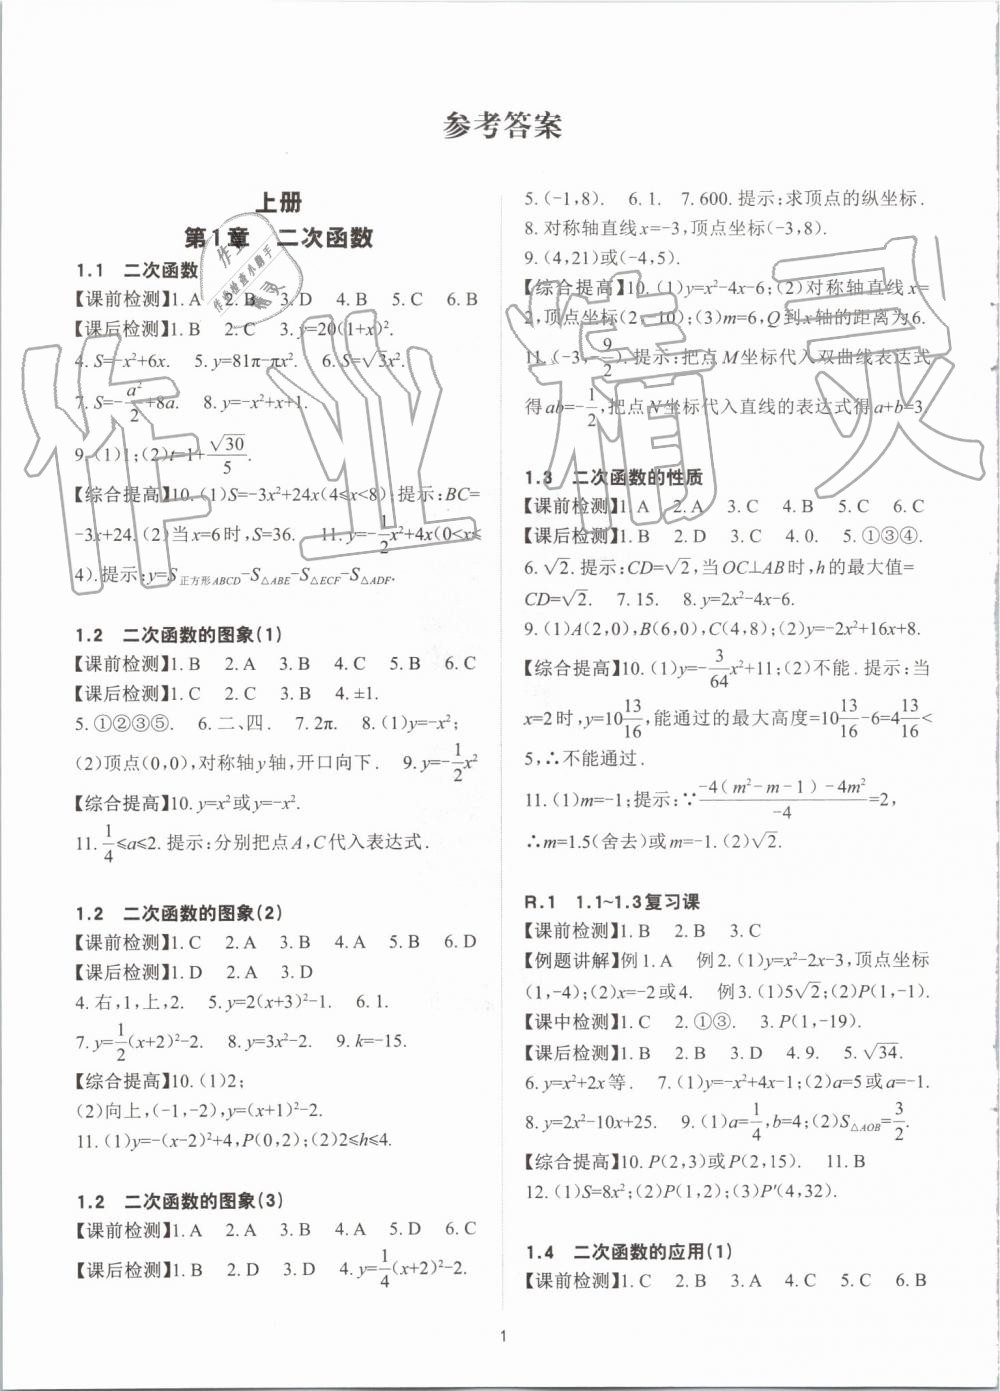 参考答案
上册
第1章 二次函数
1.1 二次函数
【课前检测】1. A 2. B 3. D 4. B 5. C 6. B
【课后检测】1. B 2. C 3. y=20(1+x)².
4. S=-x²+6x. 5. y=81π-πx². 6. S=√3x².
7. S=-a²/2+8a. 8. y=-x²+x+1.
9. (1)1;(2)t=1+√30/5.
【综合提高】10. (1)S=-3x²+24x(4≤x<8). 提示:BC=
-3x+24. (2)当x=6时,S=36. 11. y=-1/2x²+4x(0<x≤
4). 提示:y=S正方形ABCD-S△ABE-S△ECF-S△ADF.
1.2 二次函数的图象(1)
【课前检测】1. B 2. A 3. B 4. C 5. B 6. C
【课后检测】1. C 2. C 3. B 4. ±1.
5. ①②③⑤. 6. 二、四. 7. 2π. 8. (1)y=-x²;
(2)顶点(0,0),对称轴y轴,开口向下. 9. y=-1/2x²
【综合提高】10. y=x²或y=-x².
11. 1/4≤a≤2. 提示:分别把点A,C代入表达式.
1.2 二次函数的图象(2)
【课前检测】1. C 2. A 3. B 4. A 5. B 6. D
【课后检测】1. D 2. A 3. D
4. 右,1,上,2. 5. y=2(x+3)²-1. 6. 1.
7. y=1/2(x+2)²-2. 8. y=3x²-2. 9. k=-15.
【综合提高】10. (1)2;
(2)向上,(-1,-2),y=(x+1)²-2.
11. (1)y=-(x-2)²+4,P(0,2);(2)2≤h≤4.
1.2 二次函数的图象(3)
【课前检测】1. A 2. A 3. B 4. A 5. D 6. C
【课后检测】1. B 2. D 3. D 4. y=1/4(x+2)²-2.
5. (-1,8). 6. 1. 7. 600. 提示:求顶点的纵坐标.
8. 对称轴直线x=-3,顶点坐标(-3,8).
9. (4,21)或(-4,5).
【综合提高】10. (1)y=x²-4x-6;(2)对称轴直线x=
2,顶点坐标(2,-10);(3)m=6,Q到x轴的距离为6.
11. (-3,-9/2). 提示:把点M坐标代入双曲线表达式
得ab=-1/2,把点N坐标代入直线的表达式得a+b=3.
1.3 二次函数的性质
【课前检测】1. A 2. A 3. C 4. B 5. B 6. C
【课后检测】1. B 2. D 3. C 4. 0. 5. ①③④.
6. √2. 提示:CD=√2,当OC⊥AB时,h的最大值=
CD=√2. 7. 15. 8. y=2x²-4x-6.
9. (1)A(2,0),B(6,0),C(4,8);(2)y=-2x²+16x+8.
【综合提高】10. (1)y=-3/64x²+11;(2)不能. 提示:当
x=2时,y=10 13/16,能通过的最大高度=10 13/16-6=4 13/16<
5,∴不能通过.
11. (1)m=-1;提示:∵-4(m²-m-1)-4m²/-4=2,
∴m=1.5(舍去)或m=-1. (2)√2.
R.1 1.1~1.3复习课
【课前检测】1. B 2. B 3. C
【例题讲解】例1. A 例2. (1)y=x²-2x-3,顶点坐标
(1,-4);(2)x=-2或4. 例3. (1)5√2;(2)P(1,-1).
【课中检测】1. C 2. ①③. 3. P(1,-19).
【课后检测】1. C 2. B 3. D 4. 9. 5. √34.
6. y=x²+2x等. 7. (1)y=-x²+4x-1;(2)a=5或a=-1.
8. y=2x²-10x+25. 9. (1)a=1/4,b=4;(2)S△AOB=3/2.
【综合提高】10. P(2,3)或P(-2,15). 11. B
12. (1)S=8x²;(2)P(1,2);(3)P′(4,32).
1.4 二次函数的应用(1)
【课前检测】1. C 2. B 3. A 4. C 5. C 6. B
1
作业精灵